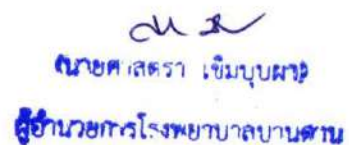 (นายศาสตรา เข็มบุบผา)
ผู้อำนวยการโรงพยาบาลบ้านด่าน